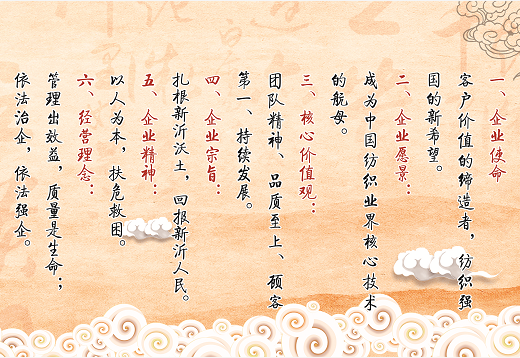 一、企业使命
客户价值的缔造者，纺织强
国的新希望。
二、企业愿景：
成为中国纺织业界核心技术
的航母。
三、核心价值观：
团队精神、品质至上、顾客
第一、持续发展。
四、企业宗旨：
扎根新沂沃土，回报新沂人民。
五、企业精神：
以人为本，扶危救困。
六、经营理念：
管理出效益，质量是生命；
依法治企，依法强企。